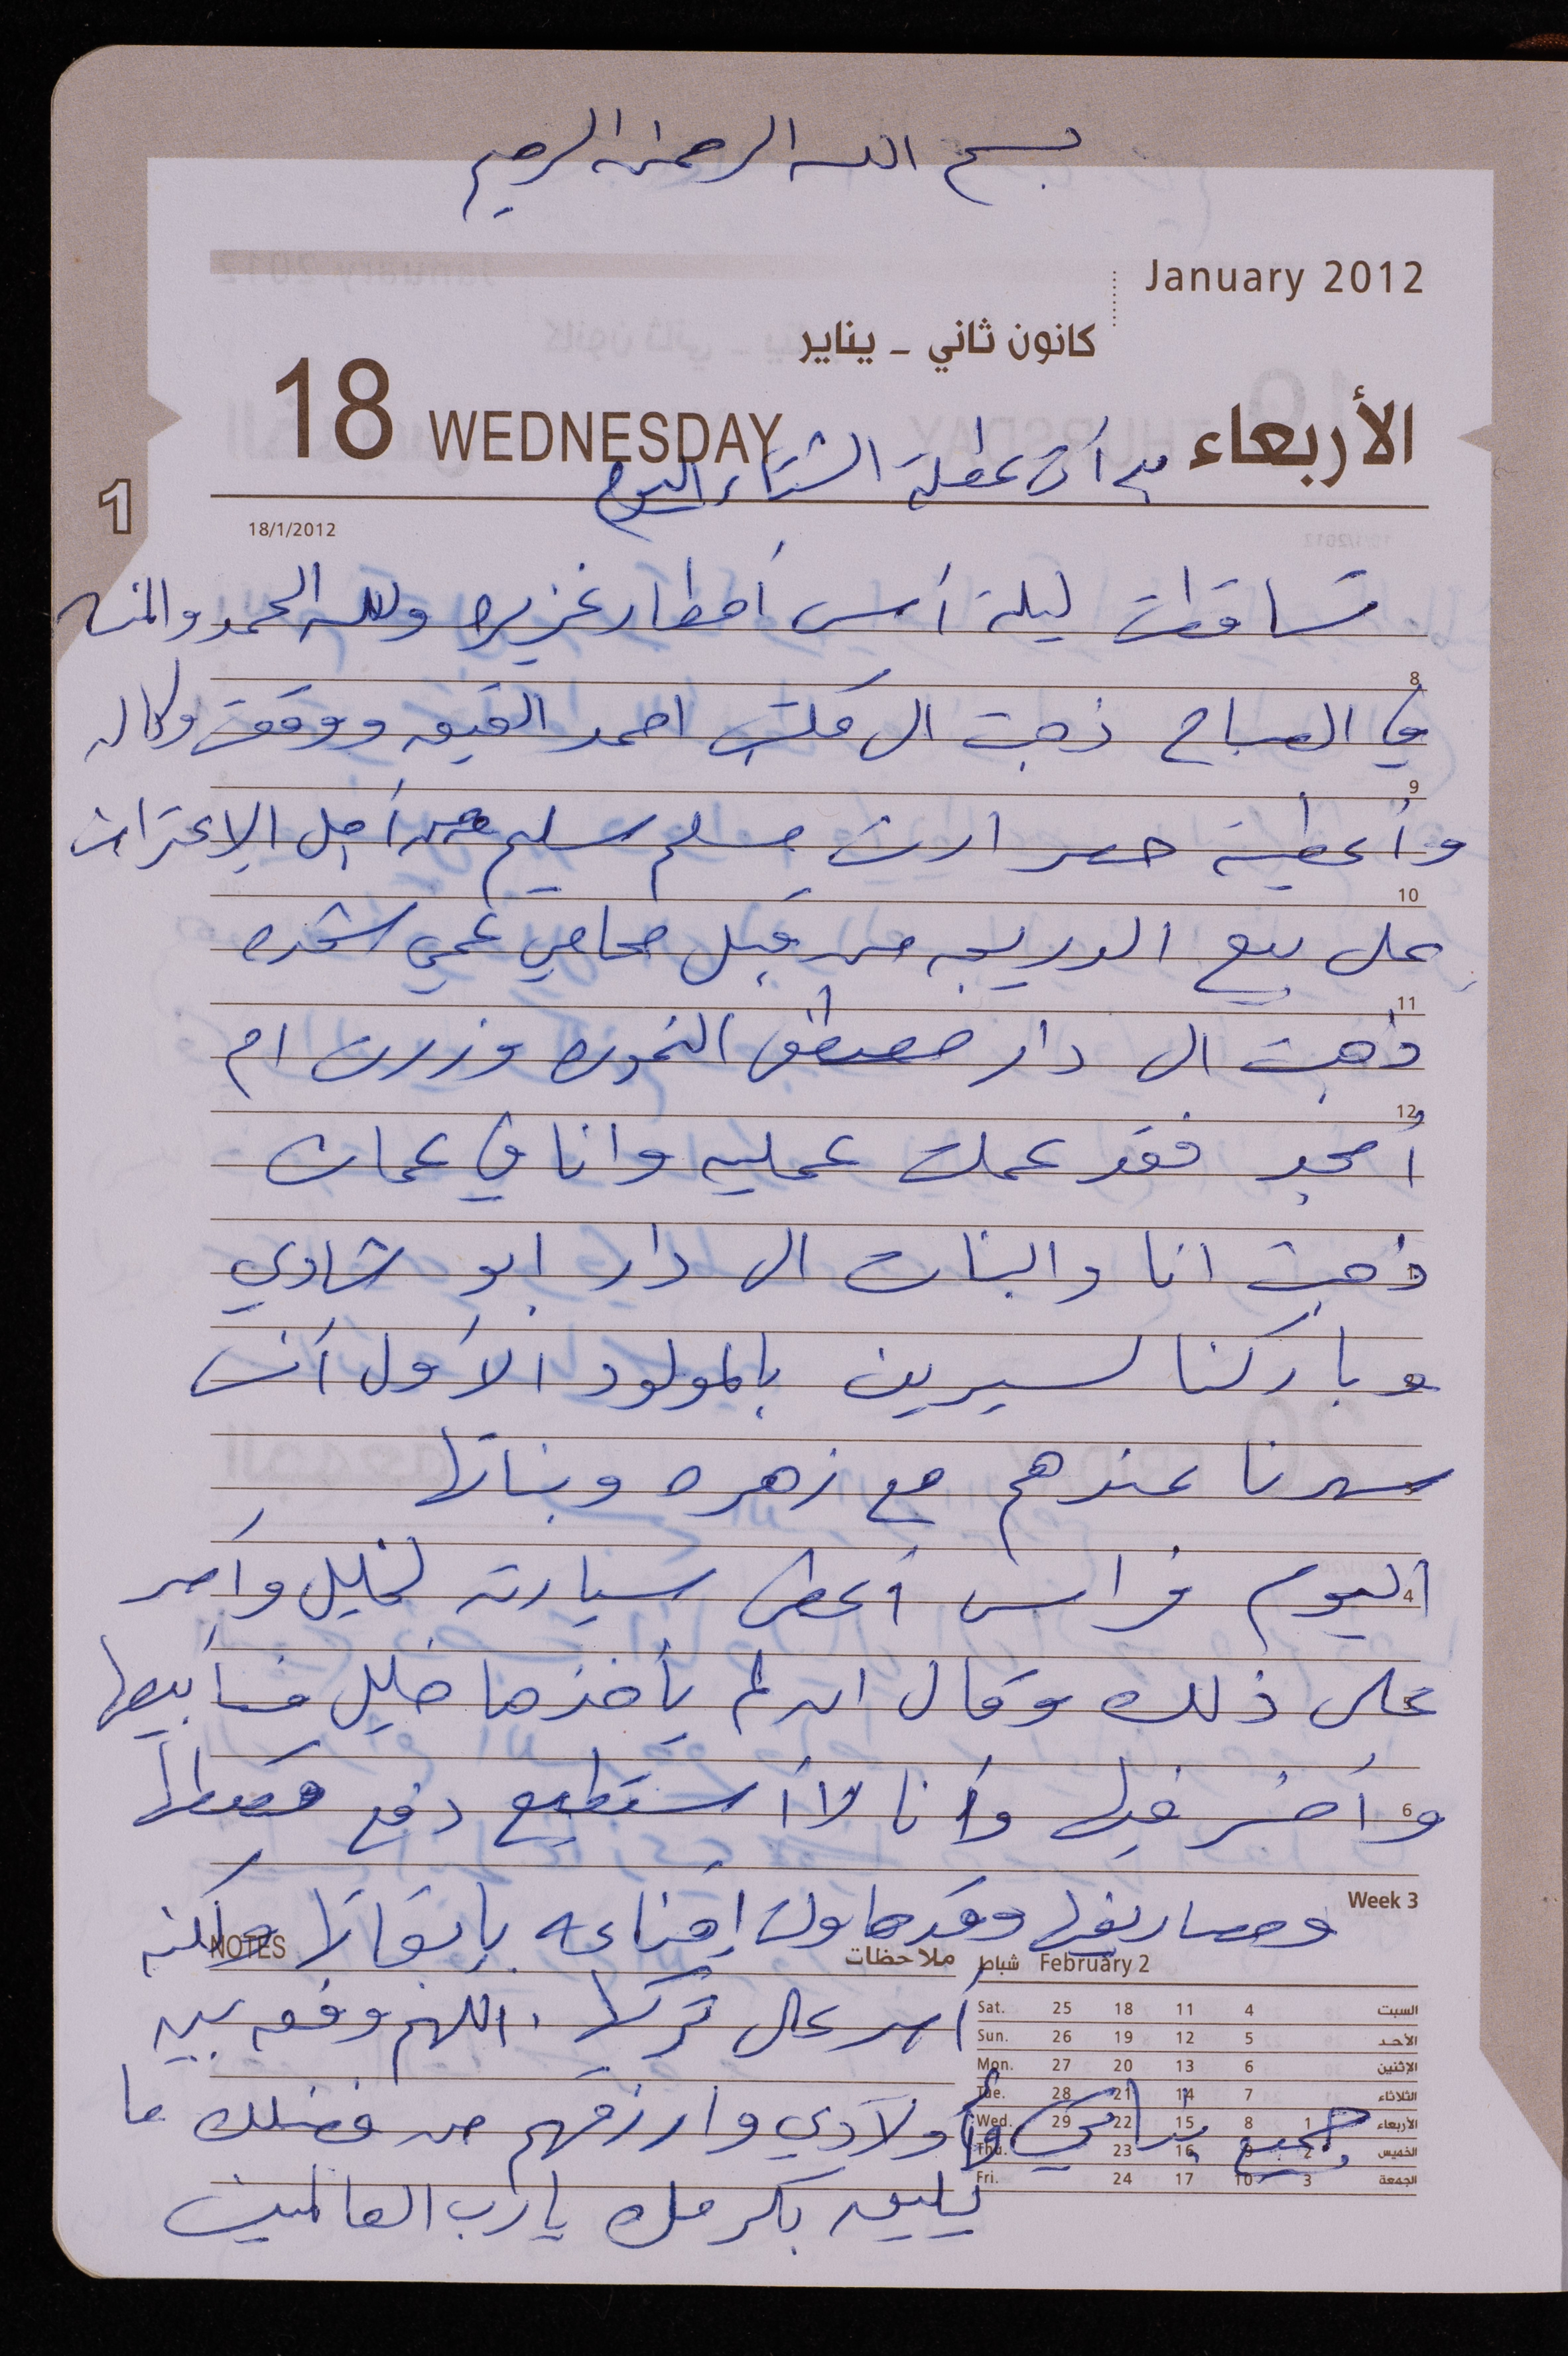 بسم الله الرحمن الرحيم
January 2012
كانون ثاني - يناير
18 WEDNESDAY الأربعاء
بدأت عطلة الشتاء اليوم
1
18/1/2012
تساقطت ليلة أمس أمطار غزيره ولله الحمد والمنه
8
في الصباح ذهبت الى مكتب احمد الفقيه ووقعت وكاله
9
وأعطيته حصر ارث مسلم سليم من أجل الإعتراف
10
على بيع من قبل محامي عمي شحده
11
ذهبت الى دار مصطفى النموره وزرت ام
12
أمجد فقد عملت عمليه وانا في عمان
ذهبت انا والبنات الى دار ابو شادي
وباركنا لسيرين بالمولود الأول أنس
سهرنا عندهم مع زهره وبناتها
اليوم فراس أعطى سيارته لخليل وأصر
4
على ذلك وقال ان لم يأخذها خليل فسأبيعها
وأخسر فيها وأنا لا أستطيع دفع قسطها
6
ومصاريفها وقد حاولت إقناعه بإبقائها ولكنه
Week 3
NOTES ملاحظات
أصر على تركها . اللهم وفقه بين
جميع بناتي وأولادي وارزقهم من فضلك ما
يليق بكرمك يا رب العالمين
شباط February 2
Sat. 25 18 11 4 السبت
Sun. 26 19 12 5 الأحد
Mon. 27 20 13 6 الإثنين
Tue. 28 21 14 7 الثلاثاء
Wed. 29 22 15 8 1 الأربعاء
Thu. 23 16 9 2 الخميس
Fri. 24 17 10 3 الجمعة